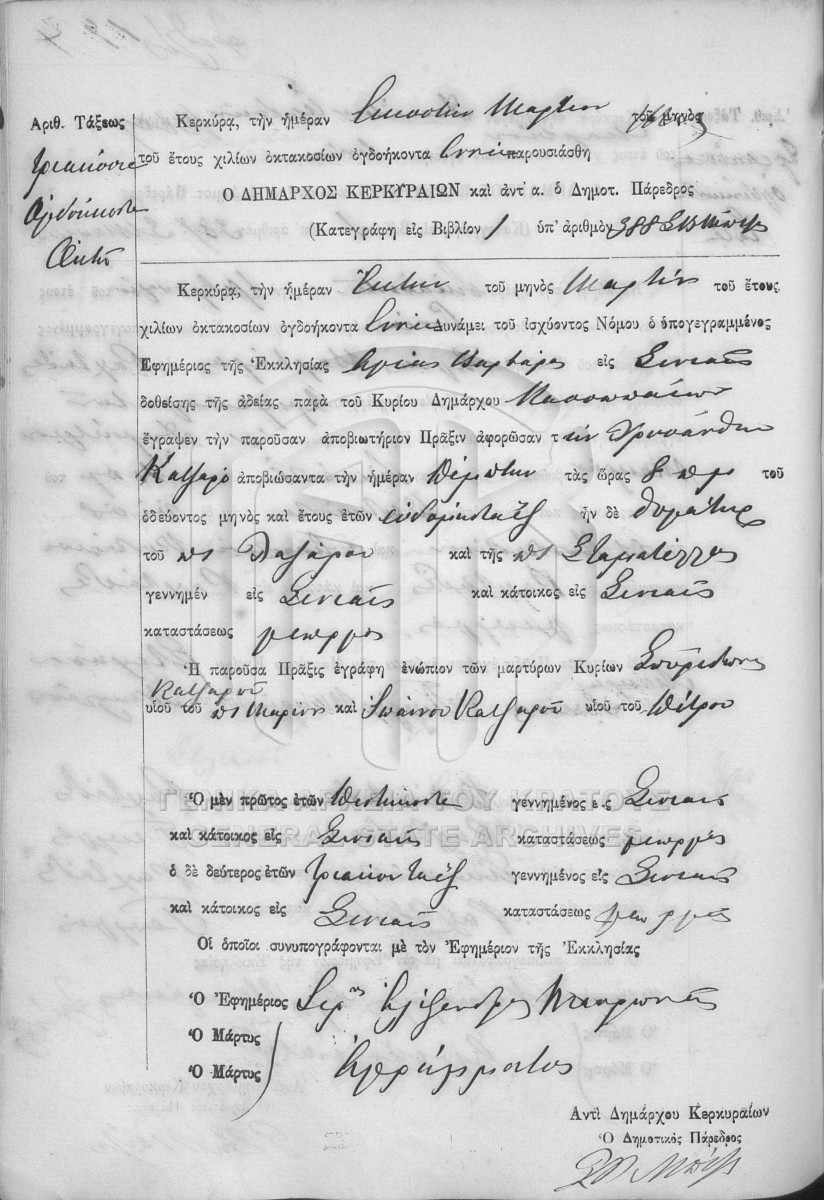 Ἀριθ. Τάξεως
Τριακόσια
Ὀγδοήκοντα
Ὀκτώ
Κερκύρᾳ, τὴν ἡμέραν Εἰκοστὴν Μαρτίου τοῦ μηνὸς
τοῦ ἔτους χιλίων ὀκτακοσίων ὀγδοήκοντα ἐννέα παρουσιάσθη
Ο ΔΗΜΑΡΧΟΣ ΚΕΡΚΥΡΑΙΩΝ καὶ ἀντ' α. ὁ Δημοτ. Πάρεδρος
(Κατεγράφη εἰς Βιβλίον 1 ὑπ' ἀριθμὸν 388
Κερκύρᾳ, τὴν ἡμέραν Ἕκτην τοῦ μηνὸς Μαρτίου τοῦ ἔτους
χιλίων ὀκτακοσίων ὀγδοήκοντα ἐννέα Δυνάμει τοῦ ἰσχύοντος Νόμου ὁ ὑπογεγραμμένος
Ἐφημέριος τῆς Ἐκκλησίας Ἁγίας Βαρβάρας εἰς Σινιαῖς
δοθείσης τῆς ἀδείας παρὰ τοῦ Κυρίου Δημάρχου Κασσωπαίων
ἔγραψεν τὴν παροῦσαν ἀποβιωτήριον Πρᾶξιν ἀφορῶσαν τ ὴν Χρυσάνθη
Κατζαρό ἀποβιώσαντα τὴν ἡμέραν Πέμπτην τὰς ὥρας 8 π μ τοῦ
ὁδεύοντος μηνὸς καὶ ἔτους ἐτῶν ἑβδομήκονταἓξ ἦν δὲ θυγάτηρ
τοῦ π Λαζάρου καὶ τῆς π Σταματέλλας
γεννημέν εἰς Σινιαῖς καὶ κάτοικος εἰς Σινιαῖς
καταστάσεως γεωργός
Ἡ παροῦσα Πρᾶξις ἐγράφη ἐνώπιον τῶν μαρτύρων Κυρίων Σπυρίδωνος
Κατζαροῦ
υἱοῦ τοῦ π Μαρίνου καὶ Ἰωάννου Κατζαροῦ υἱοῦ τοῦ Πέτρου
Ὁ μὲν πρῶτος ἐτῶν Πεντήκοντα γεννημένος εἰς Σινιαῖς
ΓΕΝΙΚΑ ΑΡΧΕΙΑ ΤΟΥ ΚΡΑΤΟΥΣ
καὶ κάτοικος εἰς Σινιαῖς καταστάσεως γεωργός
GENERAL STATE ARCHIVES
ὁ δὲ δεύτερος ἐτῶν Τριάκονταἓξ γεννημένος εἰς Σινιαῖς
καὶ κάτοικος εἰς Σινιαῖς καταστάσεως γεωργός
Οἱ ὁποῖοι συνυπογράφονται μὲ τὸν Ἐφημέριον τῆς Ἐκκλησίας
Ὁ Ἐφημέριος Ἱερεὺς Ἀλέξανδρος
Ὁ Μάρτυς
Ὁ Μάρτυς Ἀγράμματοι
Ἀντὶ Δημάρχου Κερκυραίων
Ὁ Δημοτικὸς Πάρεδρος